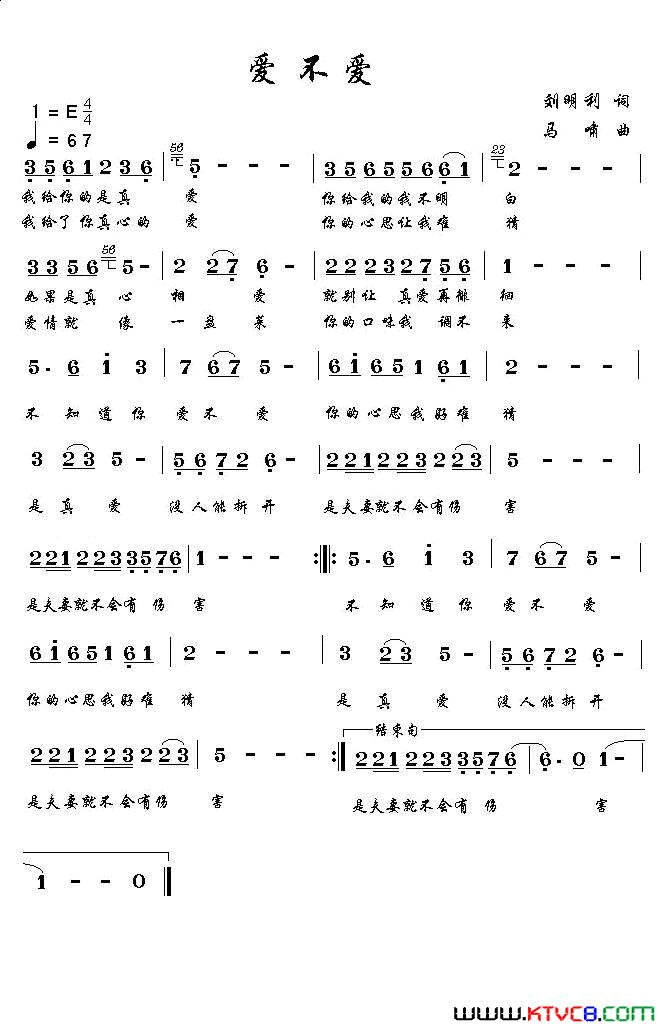 爱不爱
1 = E 4/4
♩ = 67
刘明利 词
马啸 曲
3 5 6 1 2 3 6 | 56 5 - - - | 3 5 6 5 5 6 6 1 | 23 2 - - -
我给你的是真 爱 你给我的我不明 白
我给了你真心的 爱 你的心思让我难 猜
3 3 5 6 56 5 - | 2 2 7 6 - | 2 2 2 3 2 7 5 6 | 1 - - -
如果是真心 相 爱 就别让 真爱再徘 徊
爱情就 像 一 盘 菜 你的口味我 调不 来
5. 6 i 3 | 7 6 7 5 - | 6 i 6 5 1 6 1 | 2 - - -
不 知 道 你 爱 不 爱 你的心思我好难 猜
3 2 3 5 - | 5 6 7 2 6 - | 2 2 1 2 2 3 2 2 3 | 5 - - -
是 真 爱 没人能拆开 是夫妻就不会有伤 害
2 2 1 2 2 3 3 5 7 6 | 1 - - - :‖: 5. 6 i 3 | 7 6 7 5 -
是夫妻就不会有 伤 害 不 知 道 你 爱 不 爱
6 i 6 5 1 6 1 | 2 - - - | 3 2 3 5 - | 5 6 7 2 6 -
你的心思我好难 猜 是 真 爱 没人能拆开
结束句
2 2 1 2 2 3 2 2 3 | 5 - - - :‖ 2 2 1 2 2 3 3 5 7 6 | 6. 0 1 -
是夫妻就不会有伤 害 是夫妻就不会有 伤 害
1 - - 0
www.KTVC8.com